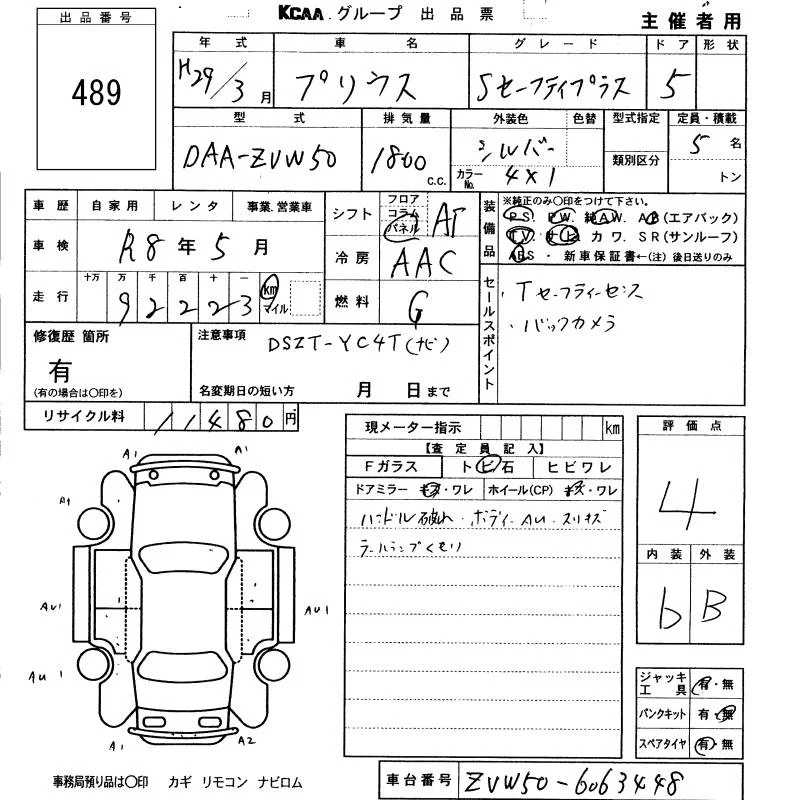 出品番号
489
KCAA.グループ 出品票
主催者用
年式 車名 グレード ドア 形状
H29/3月 プリウス Sセーフティプラス 5
型式 排気量 外装色 色替 型式指定 定員・積載
DAA-ZVW50 1800 C.C. シルバー カラーNo. 4X1 類別区分 5名
トン
車歴 自家用 レンタ 事業.営業車
車検 R8年5月
走行 十万 万 千 百 十 一
92223 km マイル
シフト フロア コラム パネル AT
冷房 AAC
燃料 G
装備品
※純正のみ○印をつけて下さい。
PS. PW. 純AW. AB(エアバック)
TV. ナビ カワ. SR(サンルーフ)
ABS ・ 新車保証書←(注)後日送りのみ
セールスポイント
Tセーフティーセンス
・バックカメラ
修復歴 箇所
有
(有の場合は○印を)
注意事項
DSZT-YC4T(ナビ)
名変期日の短い方 月 日まで
リサイクル料 11480円
現メーター指示 km
【査定員記入】
Fガラス トビ石 ヒビワレ
ドアミラー キズ・ワレ ホイール(CP) キズ・ワレ
ハンドル破れ・ボディーAU・スリキズ
テールランプくもり
評価点
4
内装 外装
b B
ジャッキ工具 有・無
パンクキット 有・無
スペアタイヤ 有・無
A1 A1
A1
AU1 AU1
AU1
A1 A2
事務局預り品は○印 カギ リモコン ナビロム
車台番号 ZVW50-6063448